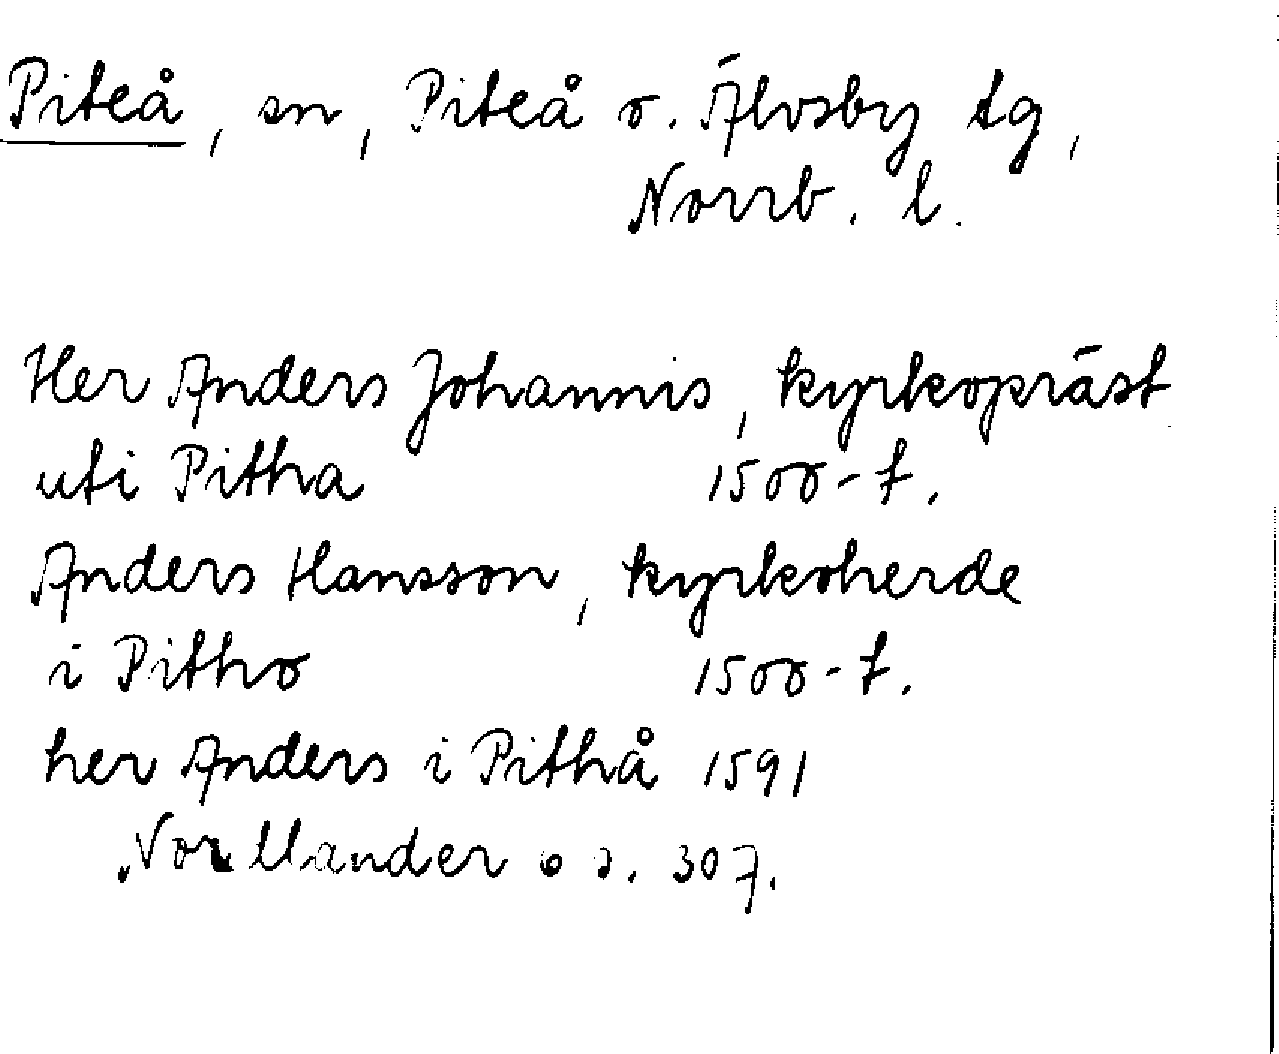 Piteå, sn, Piteå o. Älvsby tg,
Norrb. l.
Her Anders Johannis, kyrkopräst
uti Pitha 1500-t.
Anders Hansson, kyrkoherde
i Pitho 1500-t.
her Anders i Pithå 1591
Nordlander s. 307.